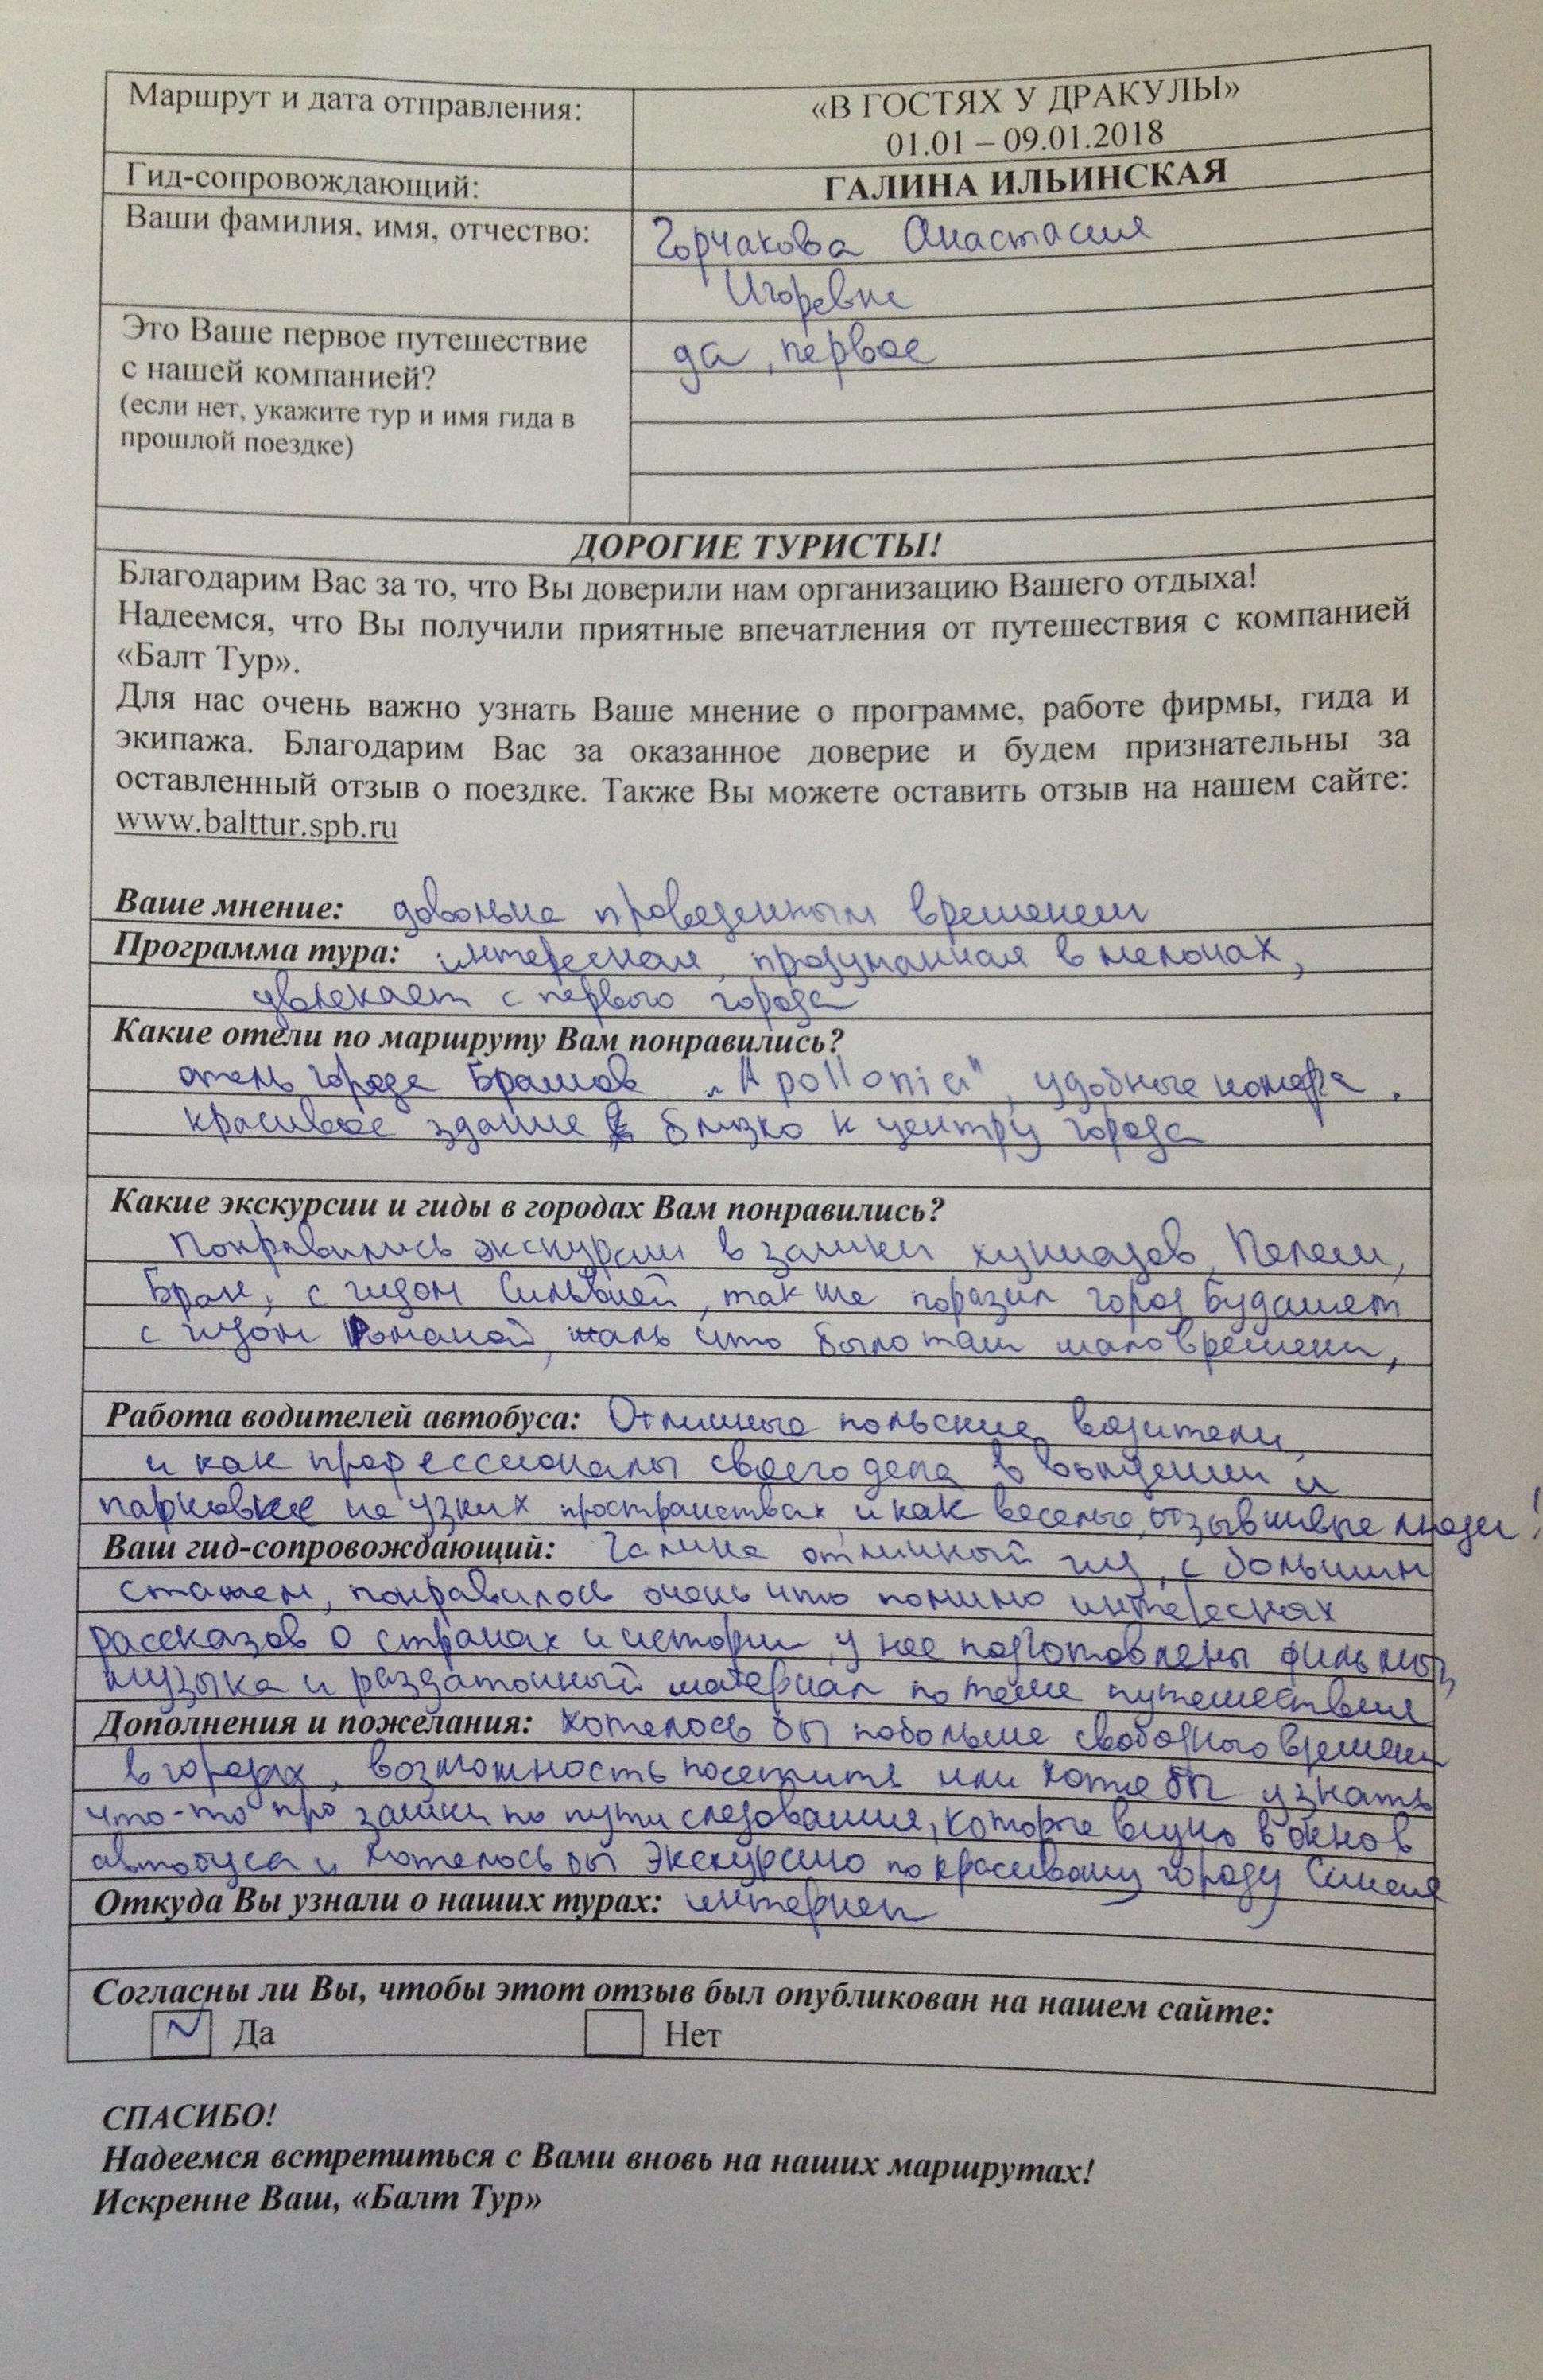 Маршрут и дата отправления:
«В ГОСТЯХ У ДРАКУЛЫ»
01.01 – 09.01.2018
Гид-сопровождающий:
ГАЛИНА ИЛЬИНСКАЯ
Ваши фамилия, имя, отчество:
Горчакова Анастасия
Игоревна
Это Ваше первое путешествие
с нашей компанией?
(если нет, укажите тур и имя гида в
прошлой поездке)
да, первое
ДОРОГИЕ ТУРИСТЫ!
Благодарим Вас за то, что Вы доверили нам организацию Вашего отдыха!
Надеемся, что Вы получили приятные впечатления от путешествия с компанией
«Балт Тур».
Для нас очень важно узнать Ваше мнение о программе, работе фирмы, гида и
экипажа. Благодарим Вас за оказанное доверие и будем признательны за
оставленный отзыв о поездке. Также Вы можете оставить отзыв на нашем сайте:
www.balttur.spb.ru
Ваше мнение: довольна проведенным временем
Программа тура: интересная, продуманная в мелочах,
увлекает с первого города
Какие отели по маршруту Вам понравились?
отель города Брашов „Apollonia", удобные номера,
красивое здание близко к центру города
Какие экскурсии и гиды в городах Вам понравились?
Понравились экскурсии в замки Хуниадов, Пелеш,
Бран, с гидом Сильвией, так же поразил город Будапешт
с гидом Романой, жаль что было там мало времени,
Работа водителей автобуса: Отличные польские водители,
и как профессионалы своего дела в вождении и
парковке на узких пространствах и как веселые, отзывчивые люди!
Ваш гид-сопровождающий: Галина отличный гид, с большим
стажем, понравилось очень что помимо интересных
рассказов о странах и истории, у нее подготовлены фильмы,
музыка и раздаточный материал по теме путешествия
Дополнения и пожелания: хотелось бы побольше свободного времени
в городах, возможность посетить или хотя бы узнать
что-то про замки по пути следования, которые видно в окнов
автобуса и хотелось бы экскурсию по красивому городу Синая
Откуда Вы узнали о наших турах: интернет
Согласны ли Вы, чтобы этот отзыв был опубликован на нашем сайте:
Да Нет
СПАСИБО!
Надеемся встретиться с Вами вновь на наших маршрутах!
Искренне Ваш, «Балт Тур»